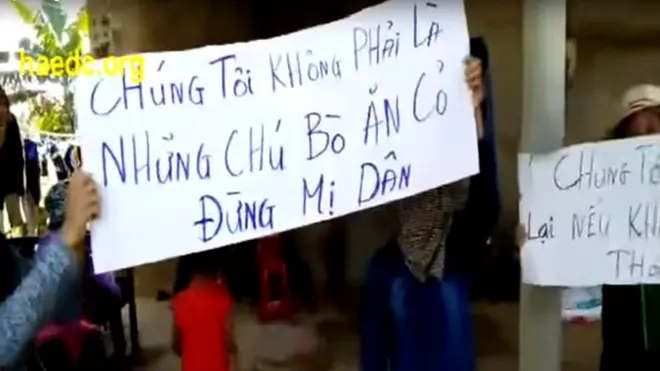 haedc.org
CHÚNG TÔI KHÔNG PHẢI LÀ
NHỮNG CHÚ BÒ ĂN CỎ
ĐỪNG MỊ DÂN
CHÚNG TÔ
LẠI NẾU KH
THO